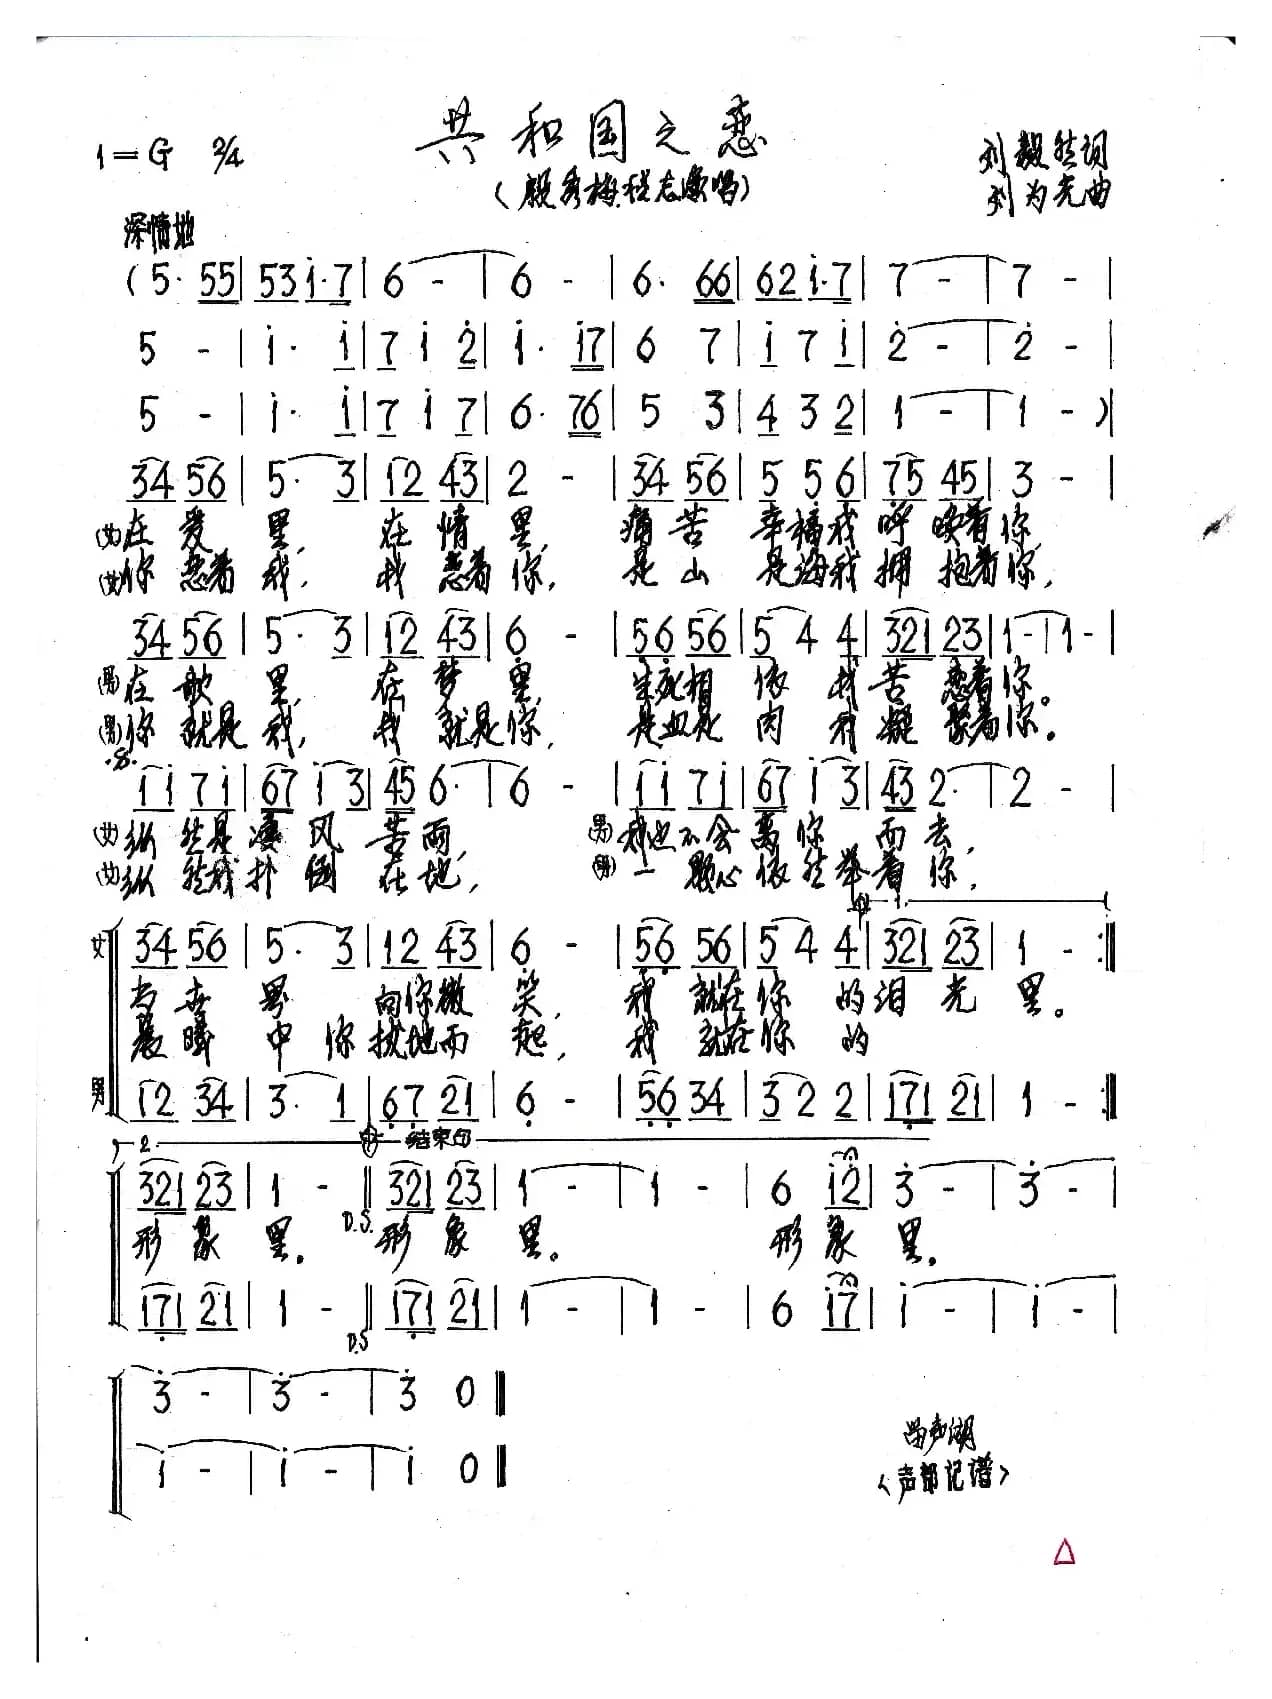 共和国之恋
1=G 2/4
(殷秀梅、程志演唱)
刘毅然词
刘为光曲
深情地
(5· 55 | 53 i·7 | 6 - | 6 - | 6· 66 | 62 i·7 | 7 - | 7 - |
5 - | i· i | 7 i 2 | i· i7 | 6 7 | i 7 i | 2 - | 2 - |
5 - | i· i | 7 i 7 | 6· 76 | 5 3 | 4 3 2 | 1 - | 1 - )|
34 56 | 5· 3 | 12 43 | 2 - | 34 56 | 5 5 6 | 75 45 | 3 - |
(女)在爱里,在情里,痛苦幸福我呼唤着你,
(女)你恋着我,我恋着你,是山是海我拥抱着你,
34 56 | 5· 3 | 12 43 | 6 - | 56 56 | 5 4 4 | 321 23 | 1 - | 1 - |
(男)在歌里,在梦里,生死相依我苦恋着你。
(男)你就是我,我就是你,是血是肉我凝聚着你。
ii 7i | 67 i3 | 45 6· | 6 - | ii 7i | 67 i3 | 43 2· | 2 - |
(女)纵然是凄风苦雨,(男)我也不会离你而去,
(女)纵然我扑倒在地,(男)一颗心依然举着你,
1.
女 34 56 | 5· 3 | 12 43 | 6 - | 56 56 | 5 4 4 | 321 23 | 1 - :||
当世界向你微笑,我就在你的泪光里。
晨曦中你拔地而起,我就在你的
男 12 34 | 3· 1 | 67 21 | 6 - | 56 34 | 3 2 2 | 171 21 | 1 - :||
2. 结束句
321 23 | 1 - || D.S. 321 23 | 1 - | 1 - | 6 i2 | 3 - | 3 - |
形象里。形象里。形象里。
171 21 | 1 - || D.S 171 21 | 1 - | 1 - | 6 i7 | i - | i - |
3 - | 3 - | 3 0 ||
i - | i - | i 0 ||
(声部记谱)